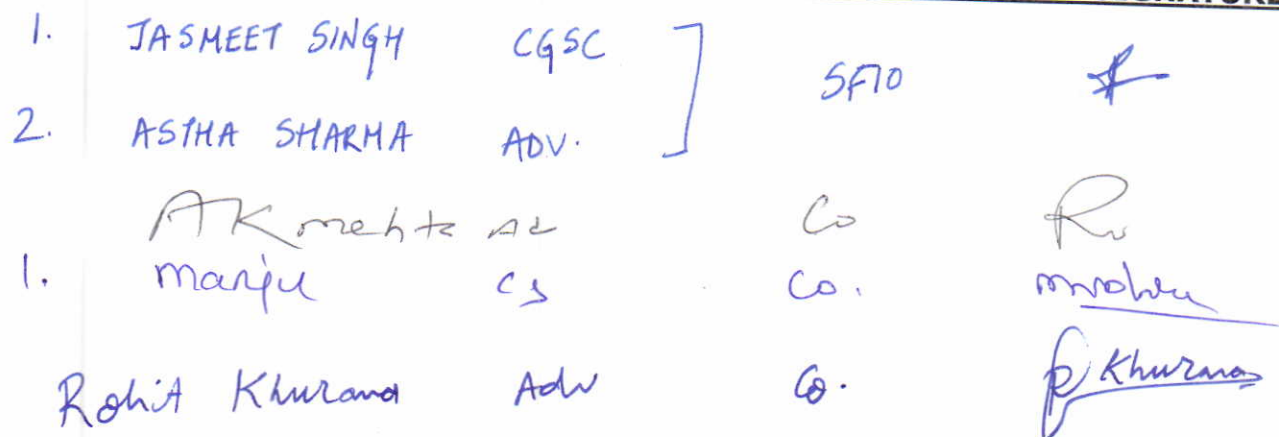 1. JASMEET SINGH CGSC
SFIO
2. ASTHA SHARMA ADV.
AK mehta Co
1. Manju CS Co.
Rohit Khurana Adv Co. Khurana